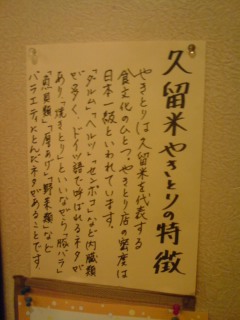 久留米やきとりの特徴
やきとりは久留米を代表する
食文化のひとつ。やきとり店の密度は
日本一級といわれています。
「ダルム」「ヘルツ」「センポコ」など内臓類
が多く、ドイツ語で呼ばれるネタが
あり「焼きとり」といいながら「豚バラ」
「魚貝類」「厚あげ」「野菜類」など
バラエティにとんだネタがあることです